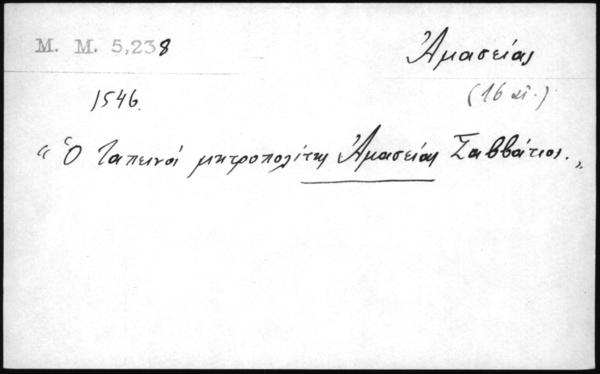 M. M. 5,238
Ἀμασείας
1546.
(16 αἰ.)
“Ὁ ταπεινὸς μητροπολίτης Ἀμασείας Σαββάτιος.„